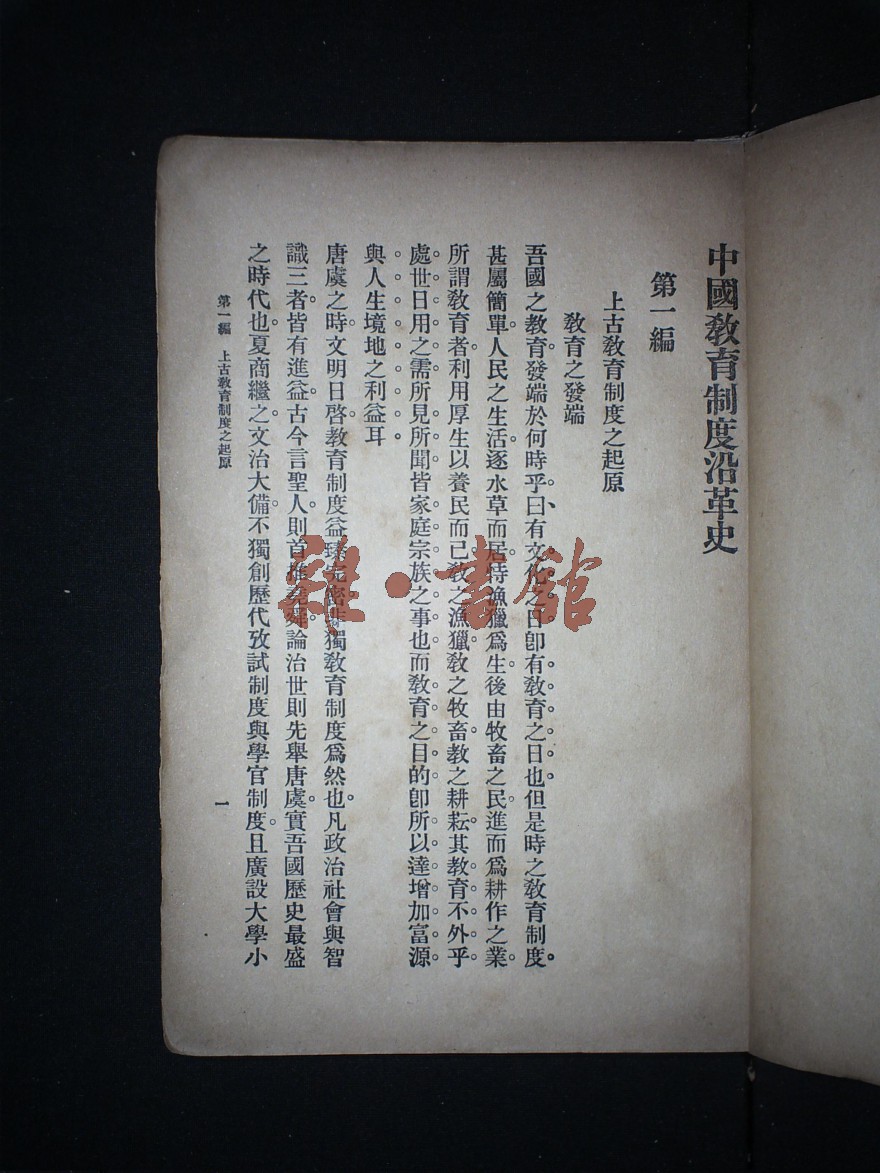 中國教育制度沿革史
第一編
上古教育制度之起原
教育之發端
吾國之教育發端於何時乎曰有文化之日卽有教育之日也但是時之教育制度
甚屬簡單人民之生活逐水草而居特漁獵爲生後由牧畜之民進而爲耕作之業
所謂教育者利用厚生以養民而已教之漁獵教之牧畜教之耕耘其教育不外乎
處世日用之需所見所聞皆家庭宗族之事也而教育之目的卽所以達增加富源
與人生境地之利益耳
唐虞之時文明日啓教育制度益臻完密非獨教育制度爲然也凡政治社會與智
識三者皆有進益古今言聖人則首推堯舜論治世則先舉唐虞實吾國歷史最盛
之時代也夏商繼之文治大備不獨創歷代攷試制度與學官制度且廣設大學小
第一編 上古教育制度之起原
一
雜·書館